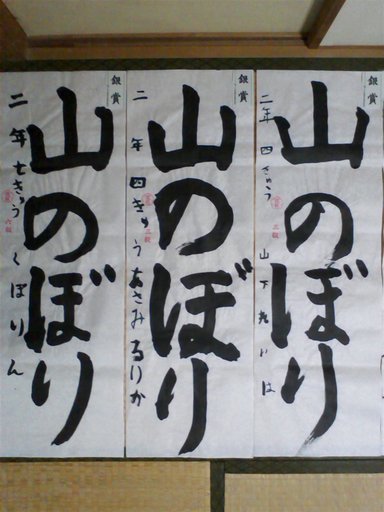 銀賞
山のぼり
二年 四きゅう 山下
三級
銀賞
山のぼり
二年 四きゅう あさみ るりか
三級
銀賞
山のぼり
二年 七きゅう くぼ りん
六級